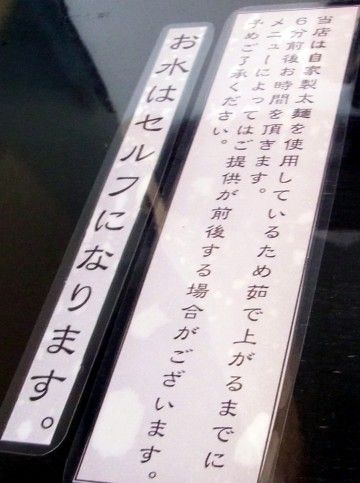 当店は自家製太麺を使用しているため茹で上がるまでに
６分前後お時間を頂きます。
メニューによってはご提供が前後する場合がございます。
予めご了承ください。
お水はセルフになります。